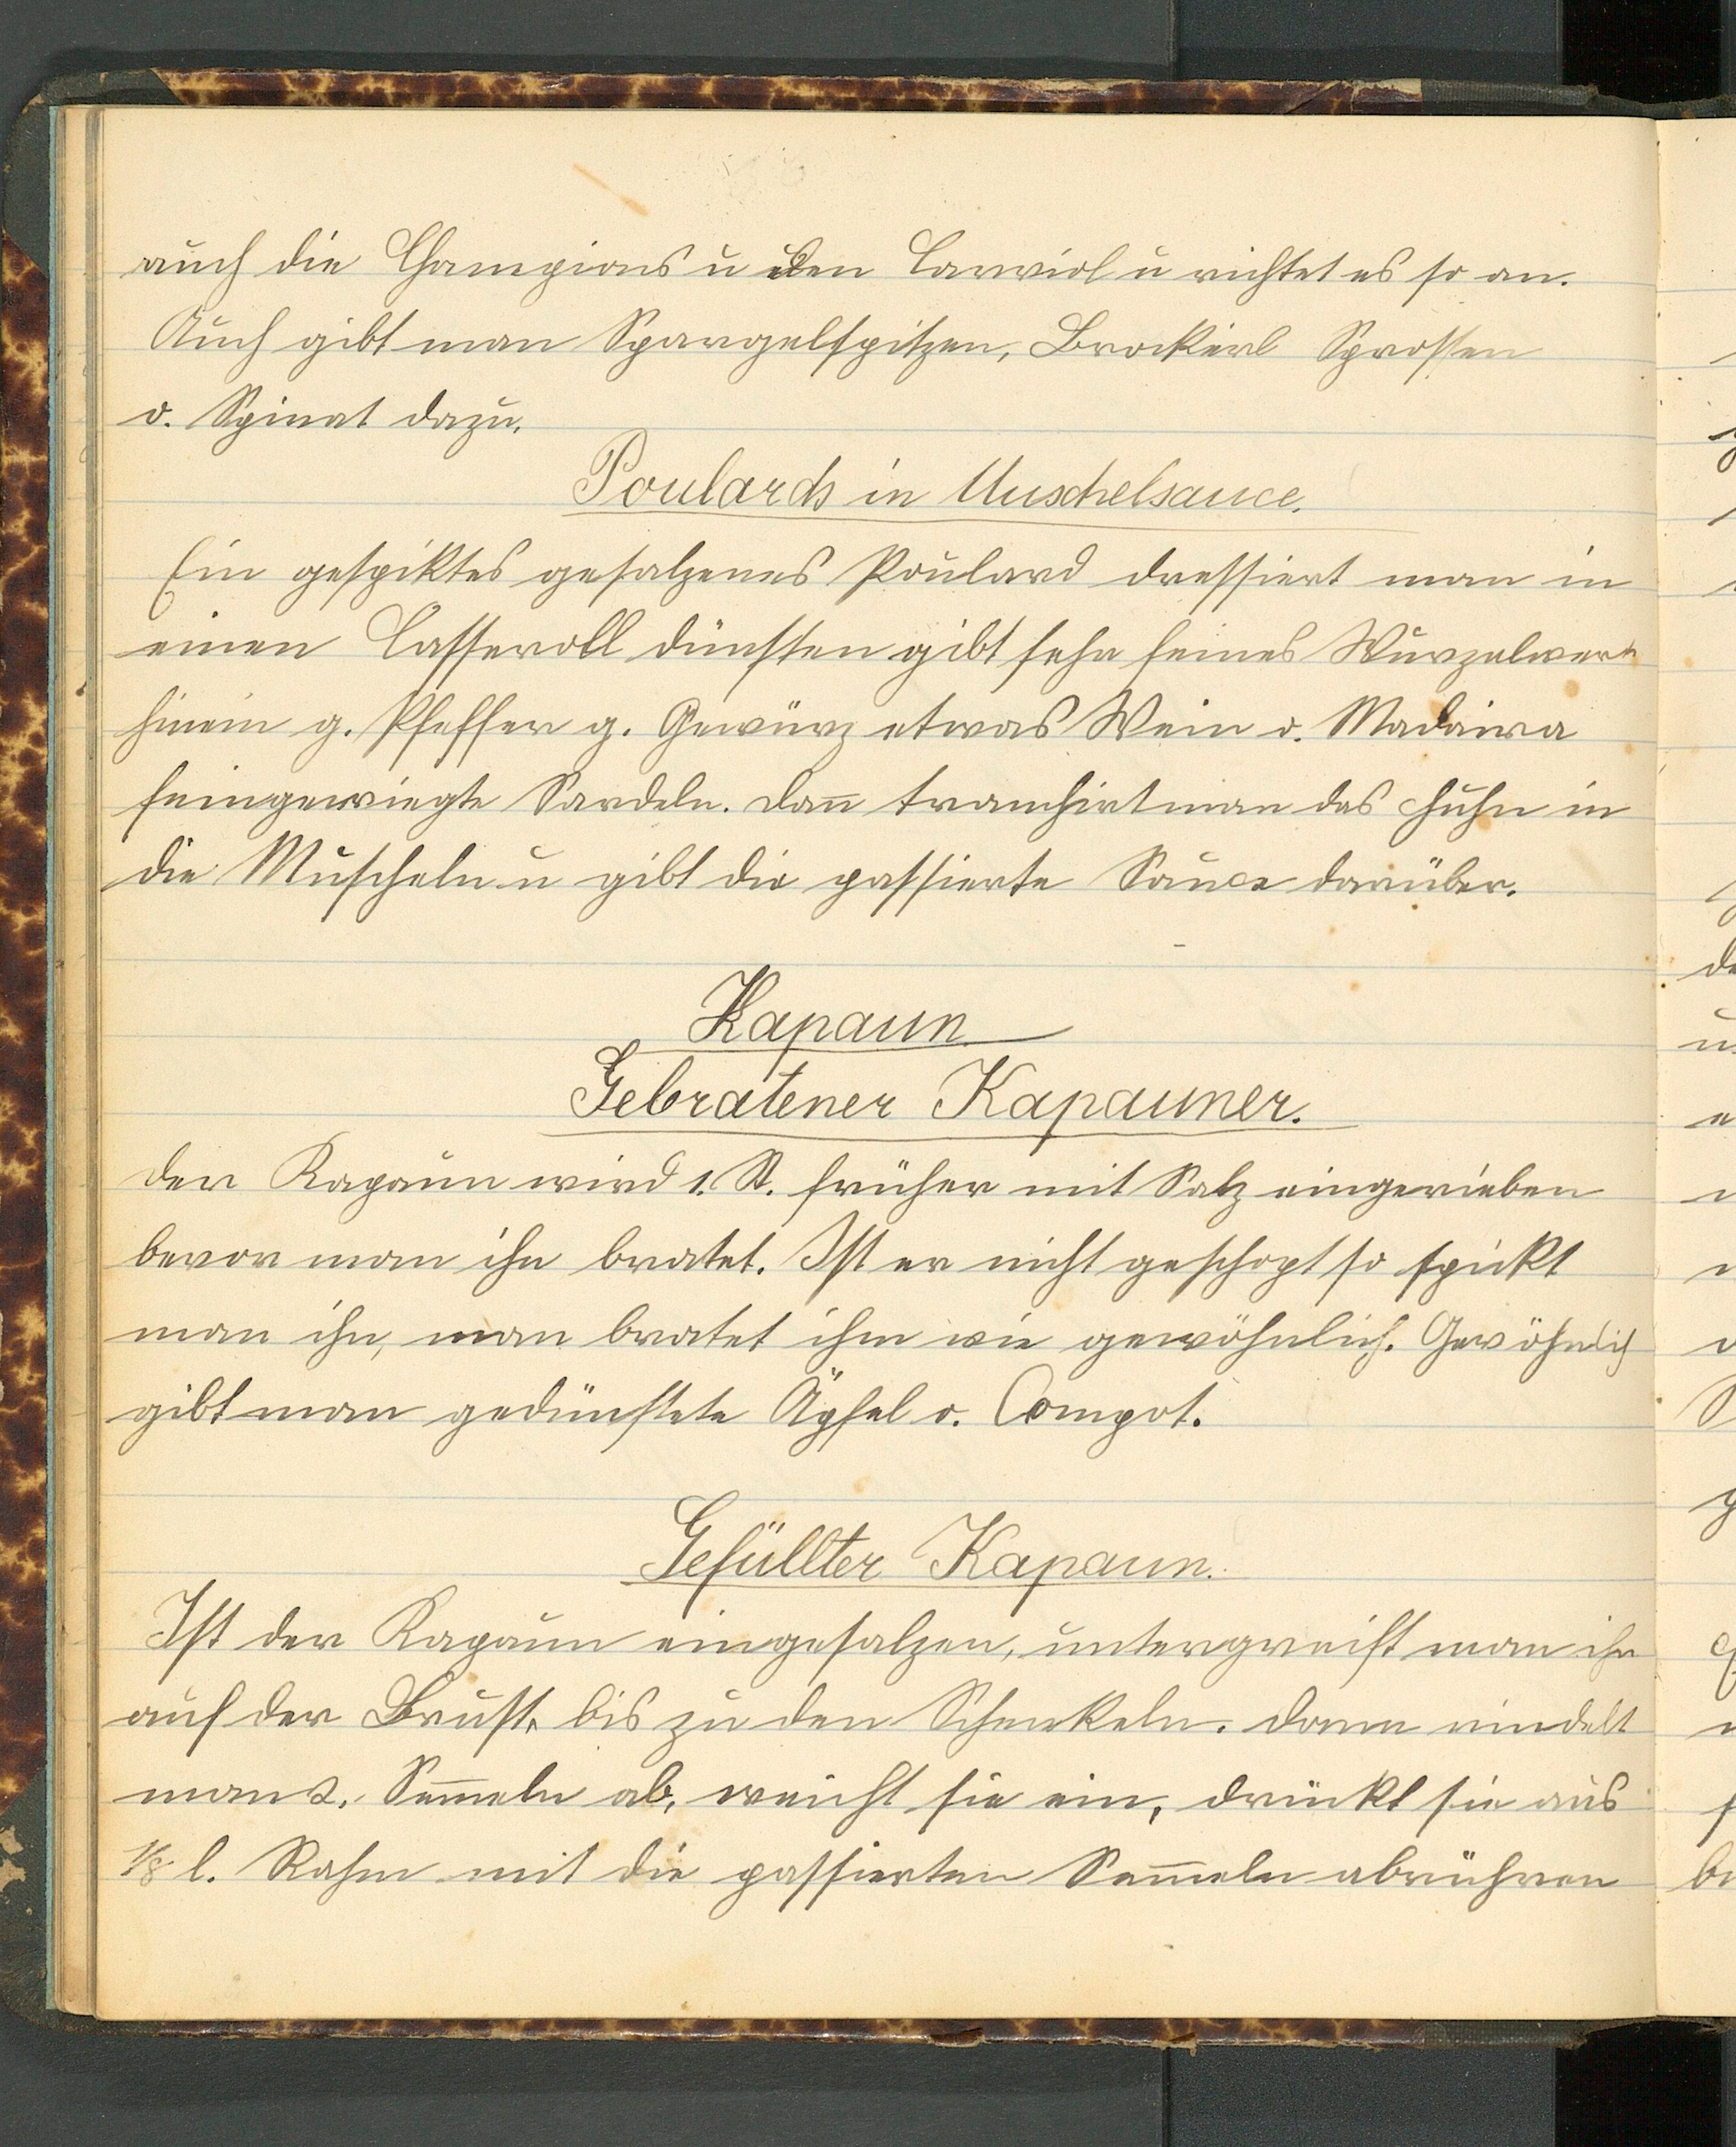 auch die Champions u den Carviol u richtet es so an.
Auch gibt man Spargelspitzen, Brockerl Sprossen
o. Spinat dazu.
Poulards in Muschelsauce.
Ein gespiktes gesalzenes Poulard dressiert man in
einen Casseroll dünsten gibt sehr feines Wurzelwerk
hinein g. Pfeffer g. Gewürz etwas Wein o. Madaira
feingewiegte Sardeln. dan̄ tranchirt man das Huhn in
die Muscheln u gibt die passierte Sauce darüber.
Kapaun
Gebratener Kapauner.
der Kapaun wird 1. St. früher mit Salz eingerieben
bevor man ihn bratet. Ist er nicht geschopt so spickt
man ihn, man bratet ihm wie gewöhnlich. Gewöhnlich
gibt man gedünstete Äpfel o. Compot.
Gefüllter Kapaun.
Ist der Kapaun eingesalzen, untergreift man ihn
auf der Brust bis zu den Schenkeln. dann rindelt
man 2. Sem̄eln ab, weicht sie ein, drückt sie aus
1/8 l. Rahm mit die passierten Sem̄eln abrühren